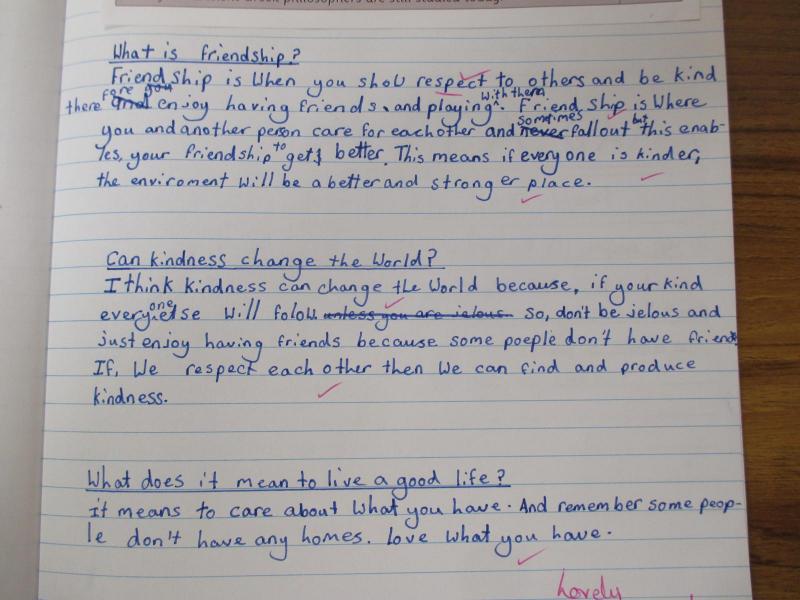 Greek philosophers are still studied today.
What is friendship?
Friendship is When you show respect to others and be kind
therefore you enjoy having friends, and playing with them. Friend ship is Where
you and another person care for eachother and sometimes fallout but this enab-
les, your friendship to get better. This means if everyone is kinder,
the enviroment will be a better and stronger place.
Can kindness change the World?
I think kindness can change the World because, if your kind
everyone else will folow. unless you are jelous. So, don't be jelous and
just enjoy having friends because some poeple don't have friends
If, We respect each other then We can find and produce
kindness.
What does it mean to live a good life?
it means to care about What you have. And remember some peop-
le don't have any homes. love What you have.
Lovely